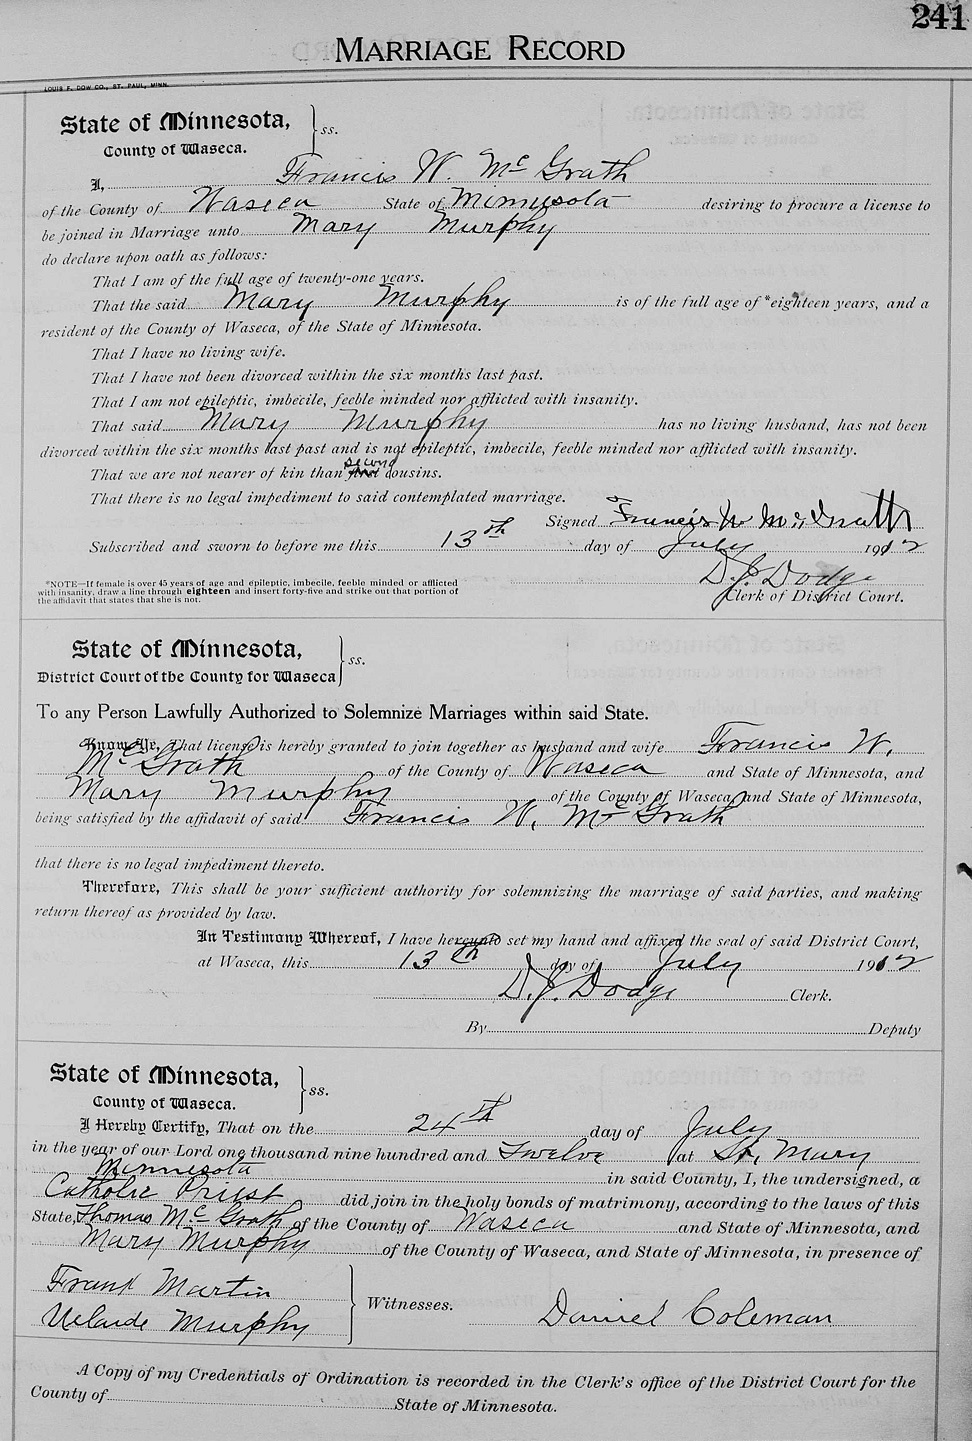 241
MARRIAGE RECORD
LOUIS F. DOW CO., ST. PAUL, MINN.
State of Minnesota,
County of Waseca. } ss.
I, Francis W. Mc Grath
of the County of Waseca State of Minnesota desiring to procure a license to
be joined in Marriage unto Mary Murphy
do declare upon oath as follows:
That I am of the full age of twenty-one years.
That the said Mary Murphy is of the full age of *eighteen years, and a
resident of the County of Waseca, of the State of Minnesota.
That I have no living wife.
That I have not been divorced within the six months last past.
That I am not epileptic, imbecile, feeble minded nor afflicted with insanity.
That said Mary Murphy has no living husband, has not been
divorced within the six months last past and is not epileptic, imbecile, feeble minded nor afflicted with insanity.
That we are not nearer of kin than second first cousins.
That there is no legal impediment to said contemplated marriage.
Signed Francis W McGrath
Subscribed and sworn to before me this 13th day of July 1912
D.J. Dodge
Clerk of District Court.
*NOTE—If female is over 45 years of age and epileptic, imbecile, feeble minded or afflicted
with insanity, draw a line through eighteen and insert forty-five and strike out that portion of
the affidavit that states that she is not.
State of Minnesota,
District Court of the County for Waseca } ss.
To any Person Lawfully Authorized to Solemnize Marriages within said State.
Know Ye, That license is hereby granted to join together as husband and wife Francis W.
Mc Grath of the County of Waseca and State of Minnesota, and
Mary Murphy of the County of Waseca and State of Minnesota,
being satisfied by the affidavit of said Francis W. Mc Grath
that there is no legal impediment thereto.
Therefore, This shall be your sufficient authority for solemnizing the marriage of said parties, and making
return thereof as provided by law.
In Testimony Whereof, I have hereunto set my hand and affixed the seal of said District Court,
at Waseca, this 13th day of July 1912
D.J. Dodge Clerk.
By Deputy
State of Minnesota,
County of Waseca. } ss.
I Hereby Certify, That on the 24th day of July
in the year of our Lord one thousand nine hundred and Twelve at St. Mary
Minnesota in said County, I, the undersigned, a
Catholic Priest did join in the holy bonds of matrimony, according to the laws of this
State, Thomas Mc Grath of the County of Waseca and State of Minnesota, and
Mary Murphy of the County of Waseca, and State of Minnesota, in presence of
Frank Martin
Murphy } Witnesses. Daniel Coleman
A Copy of my Credentials of Ordination is recorded in the Clerk's office of the District Court for the
County of State of Minnesota.